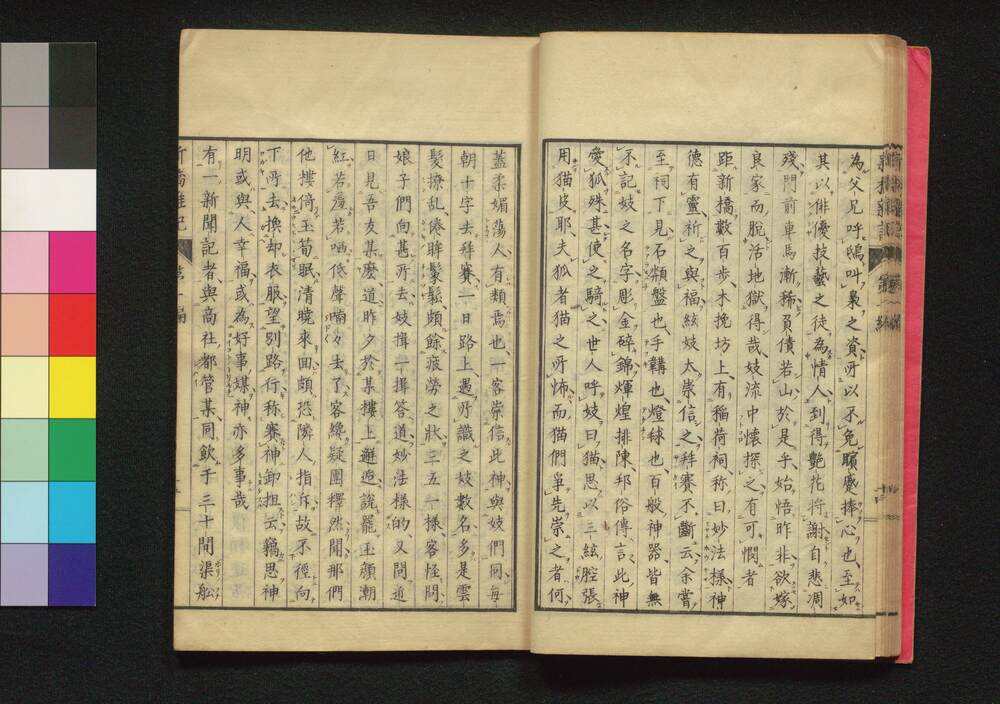 為父兄呼鴟叫梟之資所以不免矉蹙捧心也至如
其以俳優技藝之徒為情人到得艶花将謝自悲凋
殘門前車馬漸稀負債若山於是乎始悟昨非欲嫁
良家而脱活地獄得哉妓流中懐探之有可憫者
距新橋數百歩木挽坊上有稲荷祠称曰妙法様神
德有靈祈之與福絃妓太崇信之拜賽不斷云余嘗
至祠下見石類盤也手韝也燈毬也百般神器皆無
不記妓之名字彫金碎錦煇煌排陳邦俗傳言此神
愛狐殊甚使之騎之世人呼妓曰猫思以三絃腔張
用猫皮耶夫狐者猫之所怖而猫們爭先崇之者何
蓋柔媚蕩人有類焉也一客崇信此神與妓們同每
朝十字去拜賽一日路上遇乃識之妓數名多是雲
髪撩乱倦眸鬟鬆頗餘疲勞之狀三五一様客怪問
娘子們向甚所去妓揖一揖答道妙法様的又問近
日見吾友某麽道昨夕於某樓上邂逅說罷玉顔潮
紅若羞若哂低聲喃々去了客纔疑團釋然關那們
他樓倚玉筍眠清曉來回頗恐隣人指斥故不徑向
下所去換却衣服望別路行称賽神卸担云竊思神
明或與人幸福或為好事媒神亦多事哉
有一新聞記者與商社都管某同飲于三十間渠舩
新橋雑記
第一編